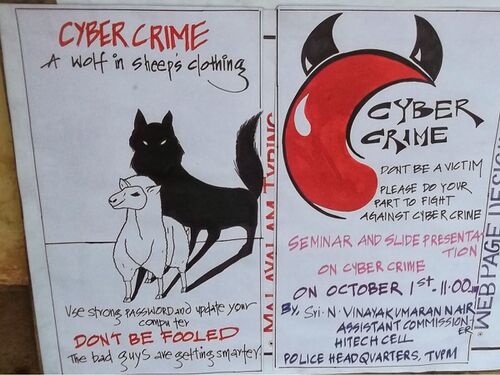 CYBER CRIME
A wolf in sheep's clothing
Use strong PASSWORD and update your
computer
DON'T BE FOOLED
The bad guys are getting smarter
MALAYALAM TYPING
CYBER
CRIME
DON'T BE A VICTIM
PLEASE DO YOUR
PART TO FIGHT
AGAINST CYBER CRIME
SEMINAR AND SLIDE PRESENTA
TION
ON CYBER CRIME
ON OCTOBER 1st. 11:00
BY, Sri. N. VINAYAKUMARAN NAIR
ASSISTANT COMMISSION
ER
HITECH CELL
POLICE HEADQUARTERS, TVPM
WEB PAGE DESIGN